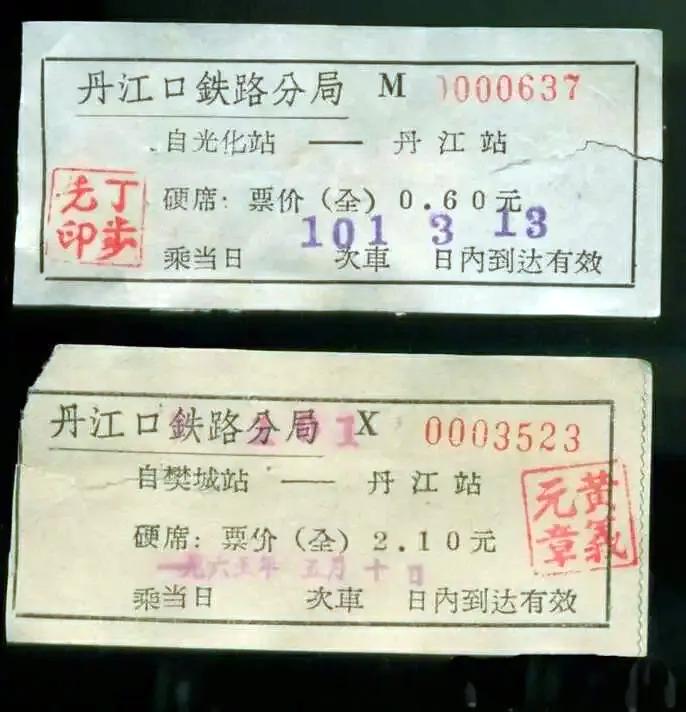 丹江口鉄路分局 M 0000637
自光化站 —— 丹江站
硬席：票价（全）0.60元
101 3 13
乘当日 次車 日内到达有效
丁步先印
丹江口鉄路分局 X 0003523
自樊城站 —— 丹江站
硬席：票价（全）2.10元
一九六五年 五月十日
乘当日 次車 日内到达有效
黄義元章